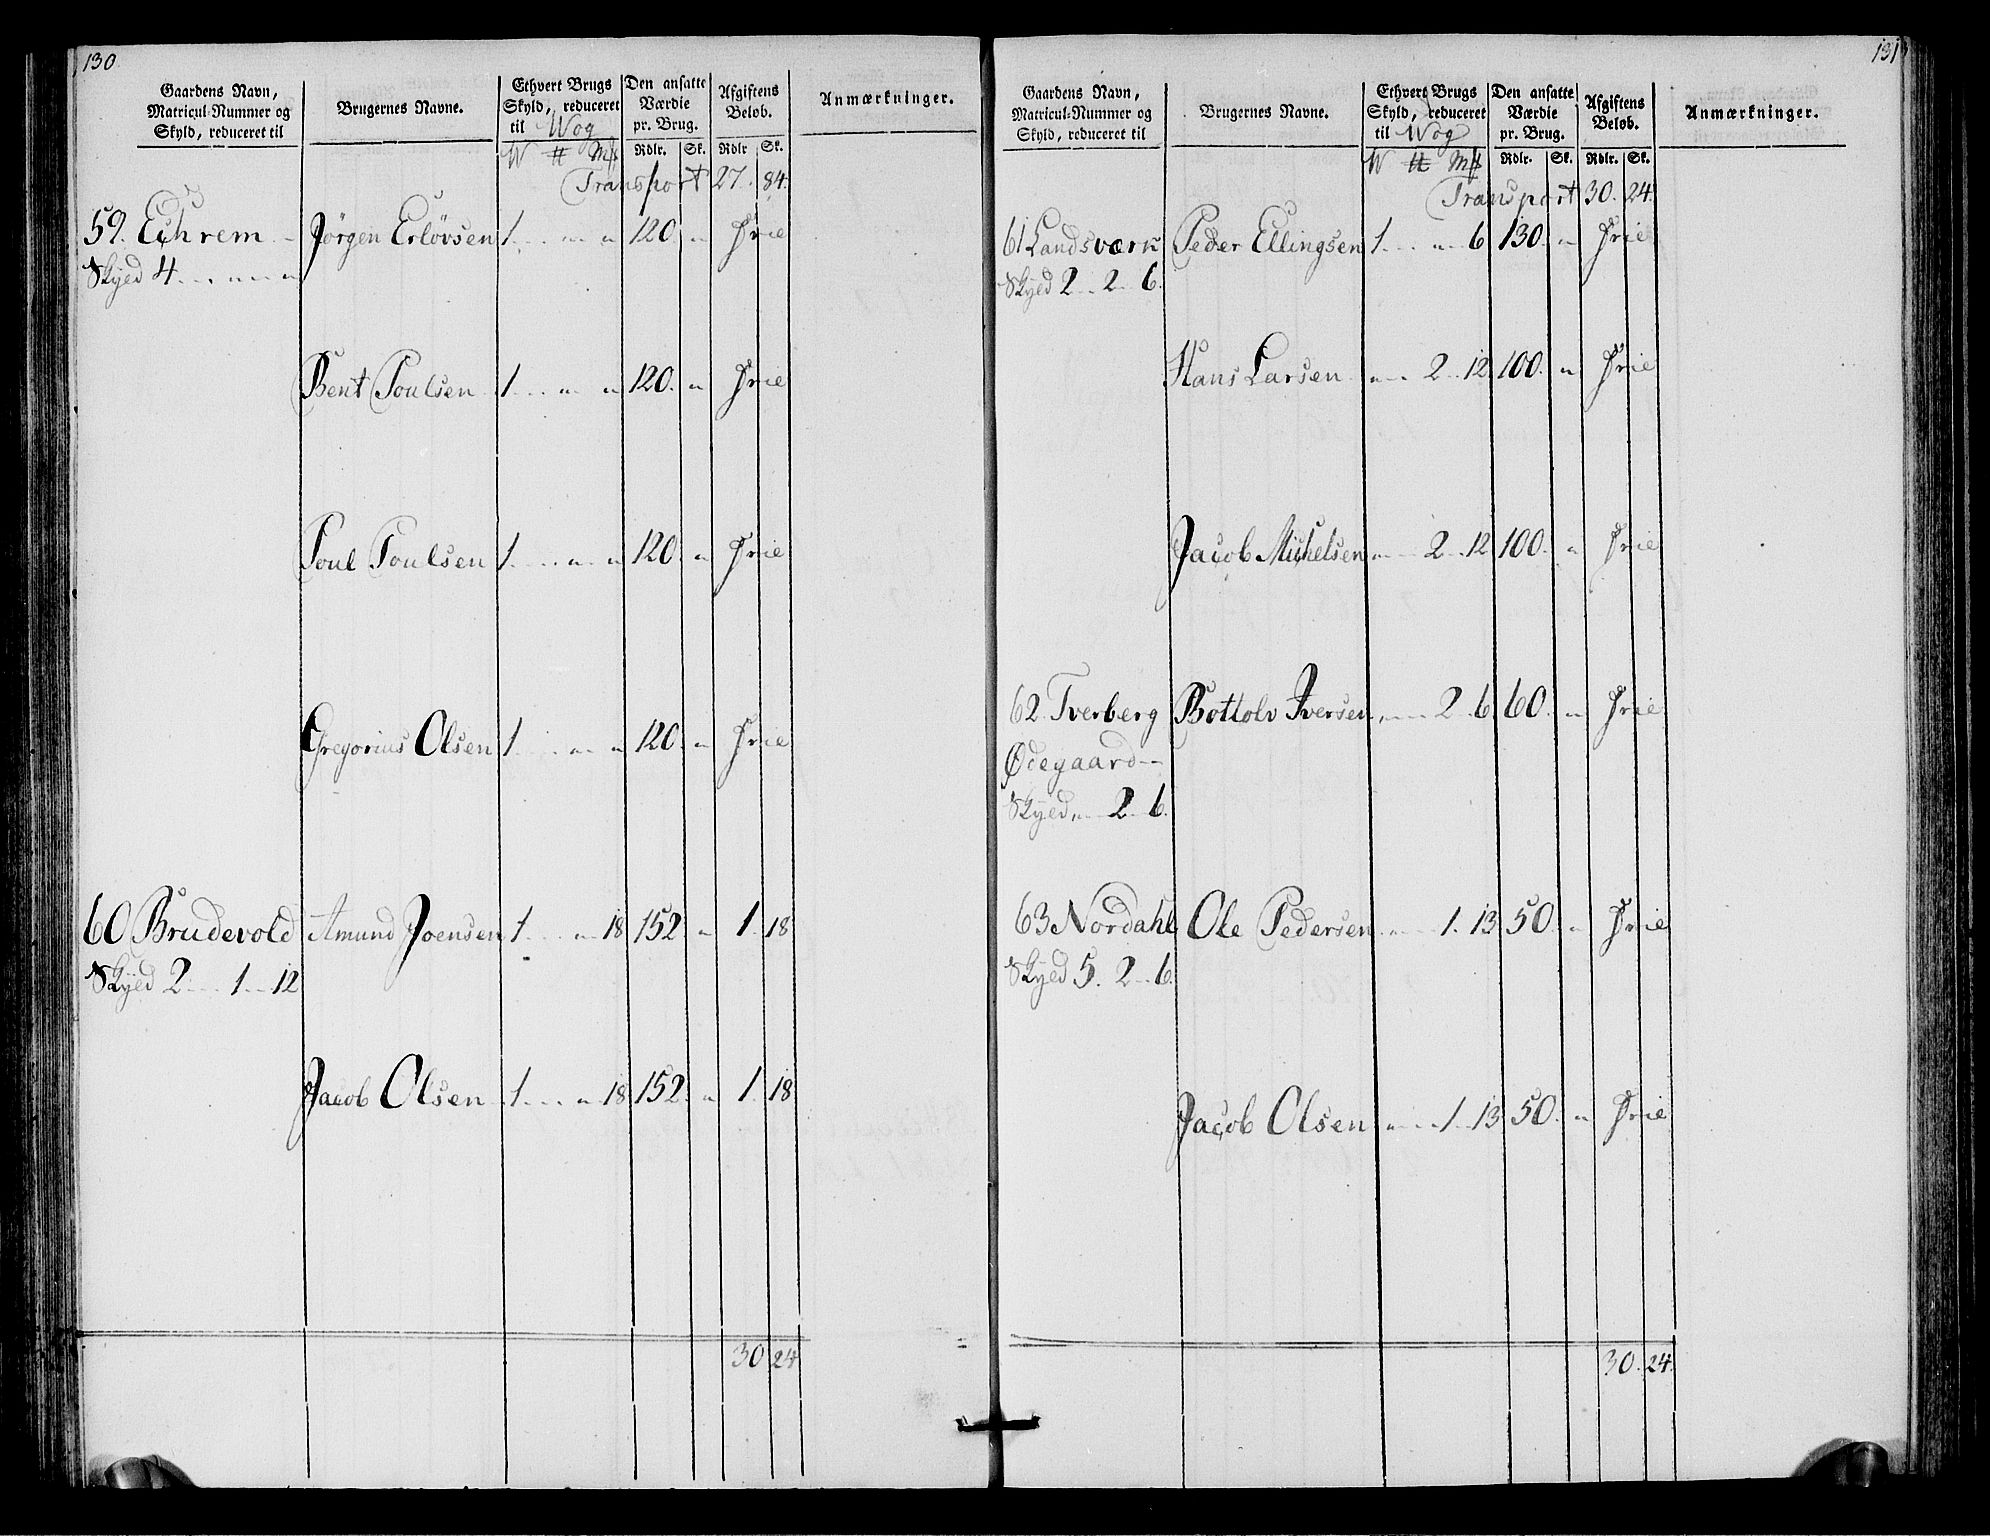 130
Gaardens Navn, Matricul-Nummer og Skyld, reduceret til
Brugernes Navne.
Ethvert Brugs Skyld, reduceret til Wog
Den ansatte Værdie pr. Brug.
Afgiftens Beløb.
Anmærkninger.
W ℔ Mk Rdlr. Sk. Rdlr Sk.
Transport 27. 84.
59. Echrem - Jørgen Erløvsen 1 . . . „ „ 120. „ Frie
Skyed 4 . . . „ „ „
Bent Poulsen 1 . . . „ „ 120. „ Frie
Poul Poulsen 1 . . . „ „ 120. „ Frie
Gregorius Olsen 1 . . . „ „ 120. „ Frie
60 Brudevold Amund Joensen 1 . . . „ 18 152. „ 1. 18
Skyed 2 . . . 1 . . 12
Jacob Olsen 1 . . . „ 18 152. „ 1. 18
30 24
131
Gaardens Navn, Matricul-Nummer og Skyld, reduceret til
Brugernes Navne.
Ethvert Brugs Skyld, reduceret til Wog
Den ansatte Værdie pr. Brug.
Afgiftens Beløb.
Anmærkninger.
W ℔ Mk Rdlr. Sk. Rdlr. Sk.
Transport 30. 24.
61 Landsværk Peder Ellingsen 1 . . . „ 6 130. „ Frie
Skyed 2 . . 2 . 6.
Hans Larsen „ . . 2 . . 12 100. „ Frie
Jacob Michelsen „ . . 2 . . 12 100. „ Frie
62. Tverberg Bottolv Iversen „ . . 2 . 6 60. „ Frie
Ødegaard --
Skyed „ . . 2 . . 6.
63 Nordahl Ole Pedersen „ . . 1. 13 50. „ Frie
Skyed 5. 2 . . 6.
Jacob Olsen „ . . 1 . . 13 50. „ Frie
30. 24.